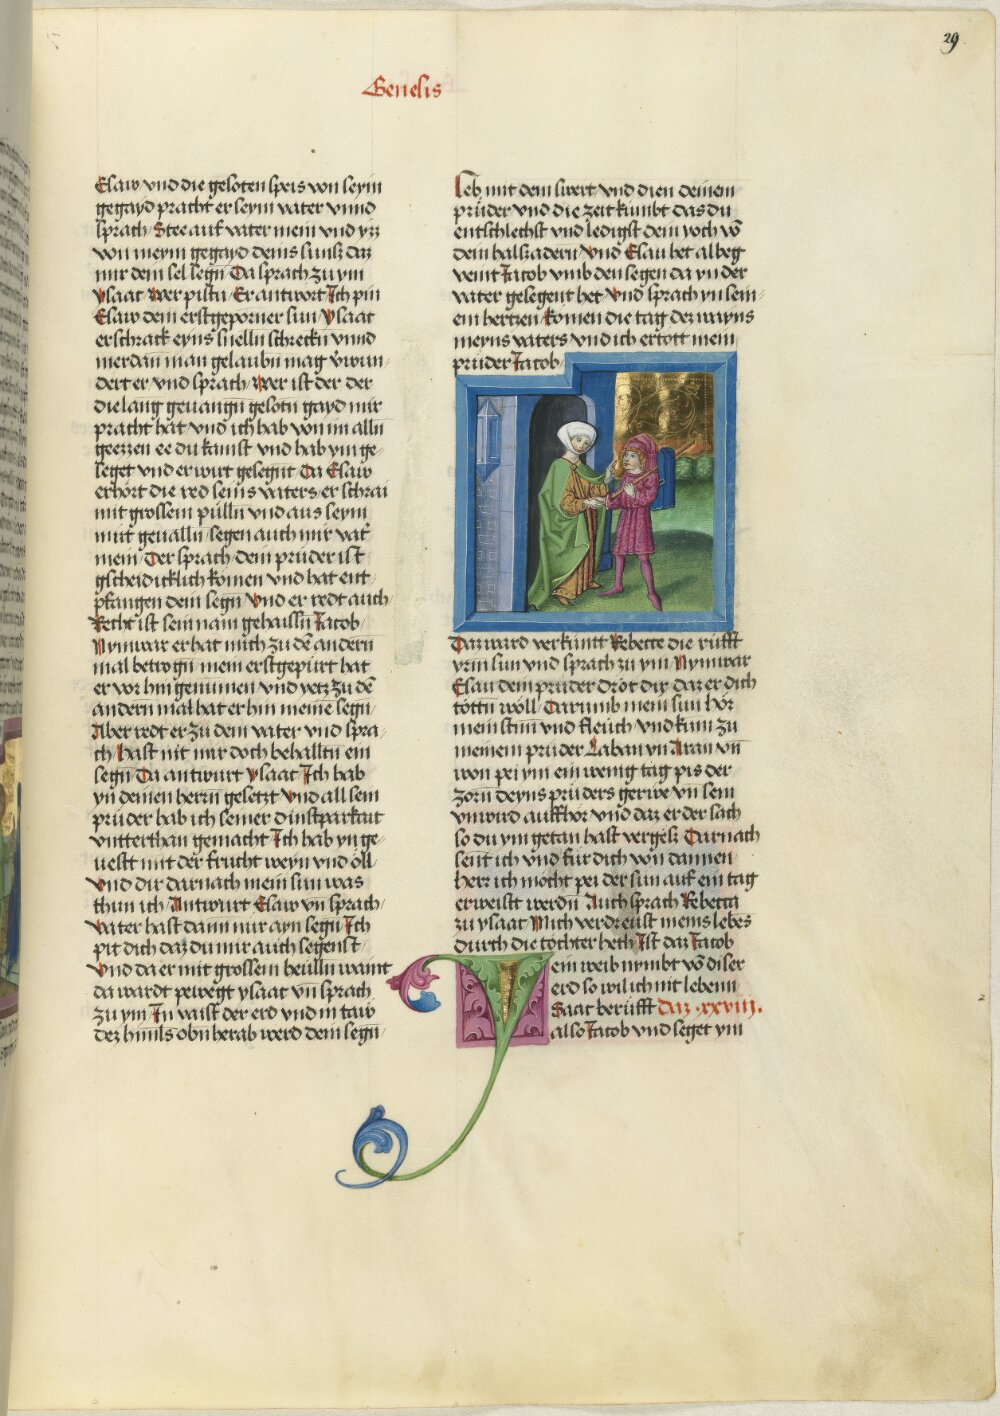 29
Genesis
Esaw vnd die gesoten speis von seym
gegayd pracht er seym vater vnnd
sprach Stee auf vater mein vnd yzz
von meym gegayd deins suns daz
mir dein sel segn Da sprach zu ym
ysaac Wer pistu Er antwort Ich pin
Esaw dein erstgeporner sun Ysaac
erschrack eyns snelln schreckn vnnd
mer dan man gelaubn mag v̇wun
dert er vnd sprach Wer ist der der
die lang geuangn gesotn gayd mir
pracht hat vnd ich hab von im alln
geezzen ee du kamst vnd hab ym ge
seget vnd er wirt gesegnt Da Esaw
erhört die red seins vaters er schrai
mit grossem pülln vnd aus seym
müt geualln segen auch mir vat̄
mein Der sprach dein prüder ist
gscheidicklich komen vnd hat ent
pfangen dein segn Vnd er redt auch
Recht ist sein nam gehaissn Jacob
Nymwar er hat mich zu dē andern
mal betrogn mein erstgepurt hat
er vor hin genumen vnd yetz zu dē
andern mal hat er hin meine segn
Aber redt er zu dem vater vnd spra
ch hast nit mir doch behalltn ein
segn Da antwurt ysaac Ich hab
yn deinen herrn gesetzt Vnd all sein
prüder hab ich seiner dinstparkait
vntterthan gemacht Ich hab yn ge
uestt mit der frucht weyn vnd öll
Vnd dir darnach mein sun was
thun ich Antwurt Esaw vn̄ sprach
Vater hast dann nur ayn segn Ich
pit dich daz du mir auch segenst
Vnd da er mit grossem heülln waint
da wardt pewegt ysaac vn̄ sprach
zu ym In vaist der erd vnd in taw
dez himls obn herab werd dein segn
Leb mit dem swert vnd dien deinem
prüder vnd die zeit kümbt das du
entschlechst vnd ledigst dein yoch vō
dein halszadern Vnd Esau het albeg
veint Jacob vmb den segen da yn der
vater gesegent het Vnd sprach yn sein
em hertzen komen die tag dez wayns
meyns vaters vnd ich ertott mein
prüder Jacob
Daz ward verkuntt Rebecce die rüfft
yrm sun vnd sprach zu ym Nymwar
Esau dein prüder dröt dir daz er dich
töttn wöll Darumb mein sun hör
mein stim vnd fleuch vnd kum zu
meinem prüder Laban yn Aran vn̄
won pei ym ein wenig tag pis der
zorn deyns prüders gerwe vn̄ sein
vnwird auffhör vnd daz er der sach
so du ym getan hast vergesz Darnach
sent ich vnd für dich von dannen
herr ich möcht pei der sun auf ein tag
erweistt werdn Auch sprach Rebecca
zu ysaac Mich verdreust meins lebes
durch die töchter heth Ist daz Jacob
ein weib nymbt vō diser
erd so wil ich nit lebenn
Ysaac berüfft Daz .xxviij.
also Jacob vnd seget ym